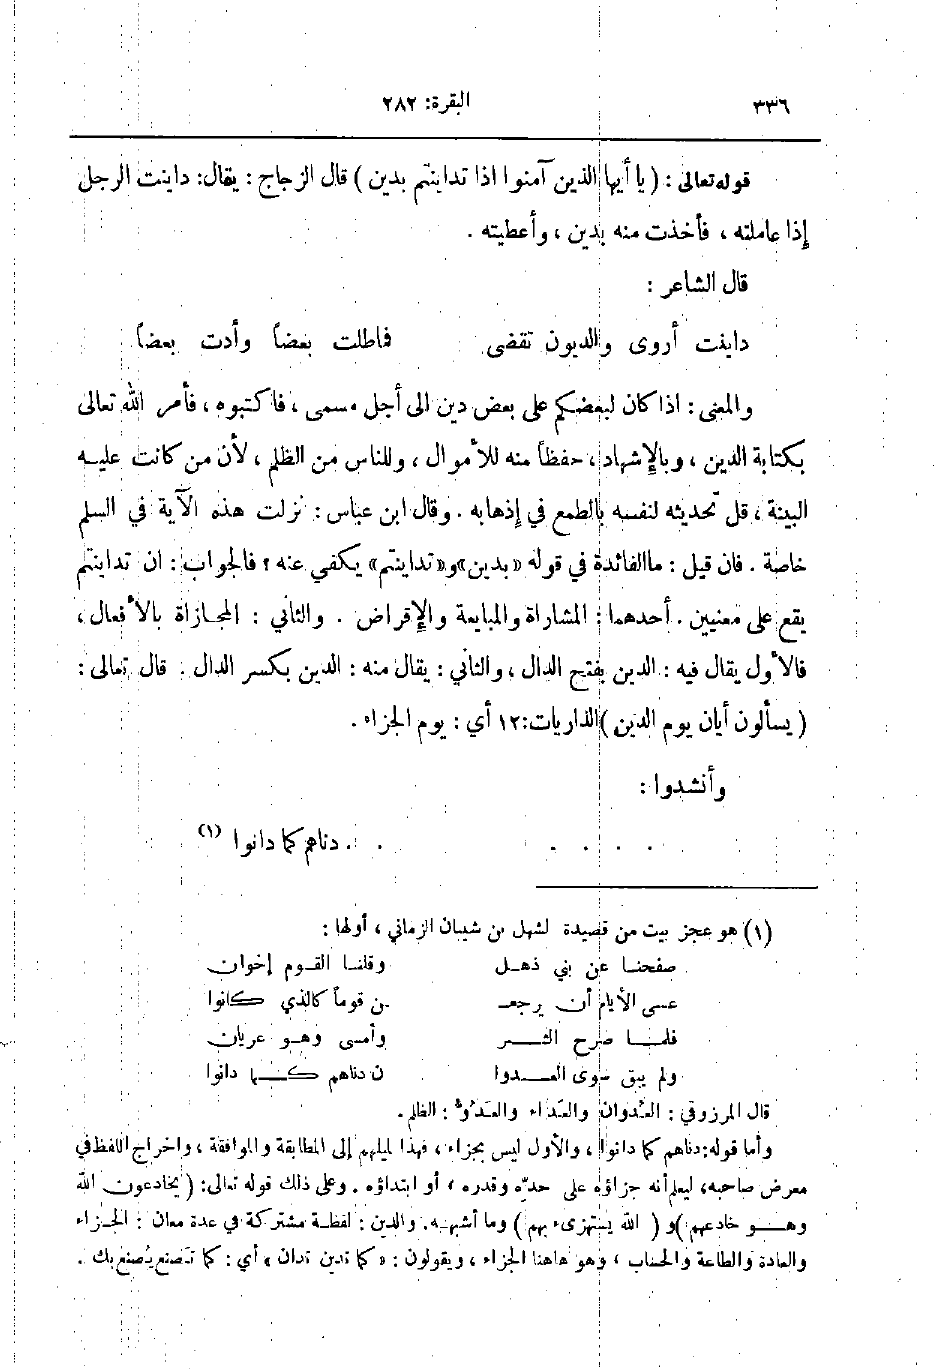 ٣٣٦ البقرة: ٢٨٢
قوله تعالى : ( يا أيها الذين آمنوا اذا تداينتم بدين ) قال الزجاج : يقال: داينت الرجل
إذا عاملته ، فأخذت منه بدين ، وأعطيته .
قال الشاعر :
داينت أروى والديون تقضى فماطلت بعضاً وأدت بعضاً
والمعنى : اذا كان لبعضكم على بعض دين الى أجل مسمى ، فاكتبوه ، فأمر الله تعالى
بكتابة الدين ، وبالإشهاد ، حفظاً منه للأموال ، وللناس من الظلم ، لأن من كانت عليه
البينة ، قل تحديثه لنفسه بالطمع في إذهابه . وقال ابن عباس : نزلت هذه الآية في السلم
خاصة . فان قيل : ما الفائدة في قوله «بدين» و«تداينتم» يكفي عنه ؟ فالجواب : ان تداينتم
يقع على معنيين . أحدهما : المشاراة والمبايعة والإقراض . والثاني : المجازاة بالأفعال ،
فالأول يقال فيه : الدين بفتح الدال ، والثاني : يقال منه : الدين بكسر الدال . قال تعالى :
( يسألون أيان يوم الدين ) الذاريات:١٢ أي : يوم الجزاء .
وأنشدوا :
. . . . . . دناهم كما دانوا (١)
(١) هو عجز بيت من قصيدة لشهل بن شيبان الزماني ، أولها :
صفحنا عن بني ذهل وقلنا القوم إخوان
عسى الأيام أن يرجعـ ـن قوماً كالذي كانوا
فلما صرح الشر وأمسى وهو عريان
ولم يبق سوى العدوا ن دناهم كما دانوا
قال المرزوقي : العُدوان والعَداء والعَدْوُ : الظلم .
وأما قوله: دناهم كما دانوا ، والأول ليس بجزاء ، فهذا لميلهم إلى المطابقة والموافقة ، واخراج اللفظ في
معرض صاحبه، ليعلم أنه جزاؤه على حدّه وقدره ، أو ابتداؤه . وعلى ذلك قوله تعالى: ( يخادعون الله
وهو خادعهم ) و ( الله يستهزىء بهم ) وما أشبهه. والدين : لفظة مشتركة في عدة معان : الجزاء
والعادة والطاعة والحساب ، وهو هاهنا الجزاء ، ويقولون : « كما تدين تدان » أي : كما تَصنع يُصنع بك .